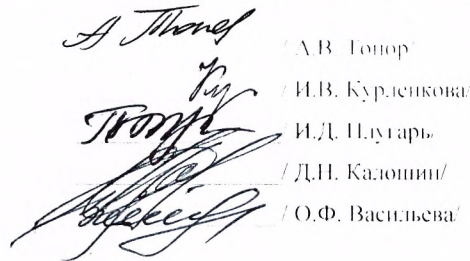 / А.В. Топор/
/ И.В. Курленкова/
/ И.Д. Плугарь/
/ Д.Н. Калошин/
/ О.Ф. Васильева/